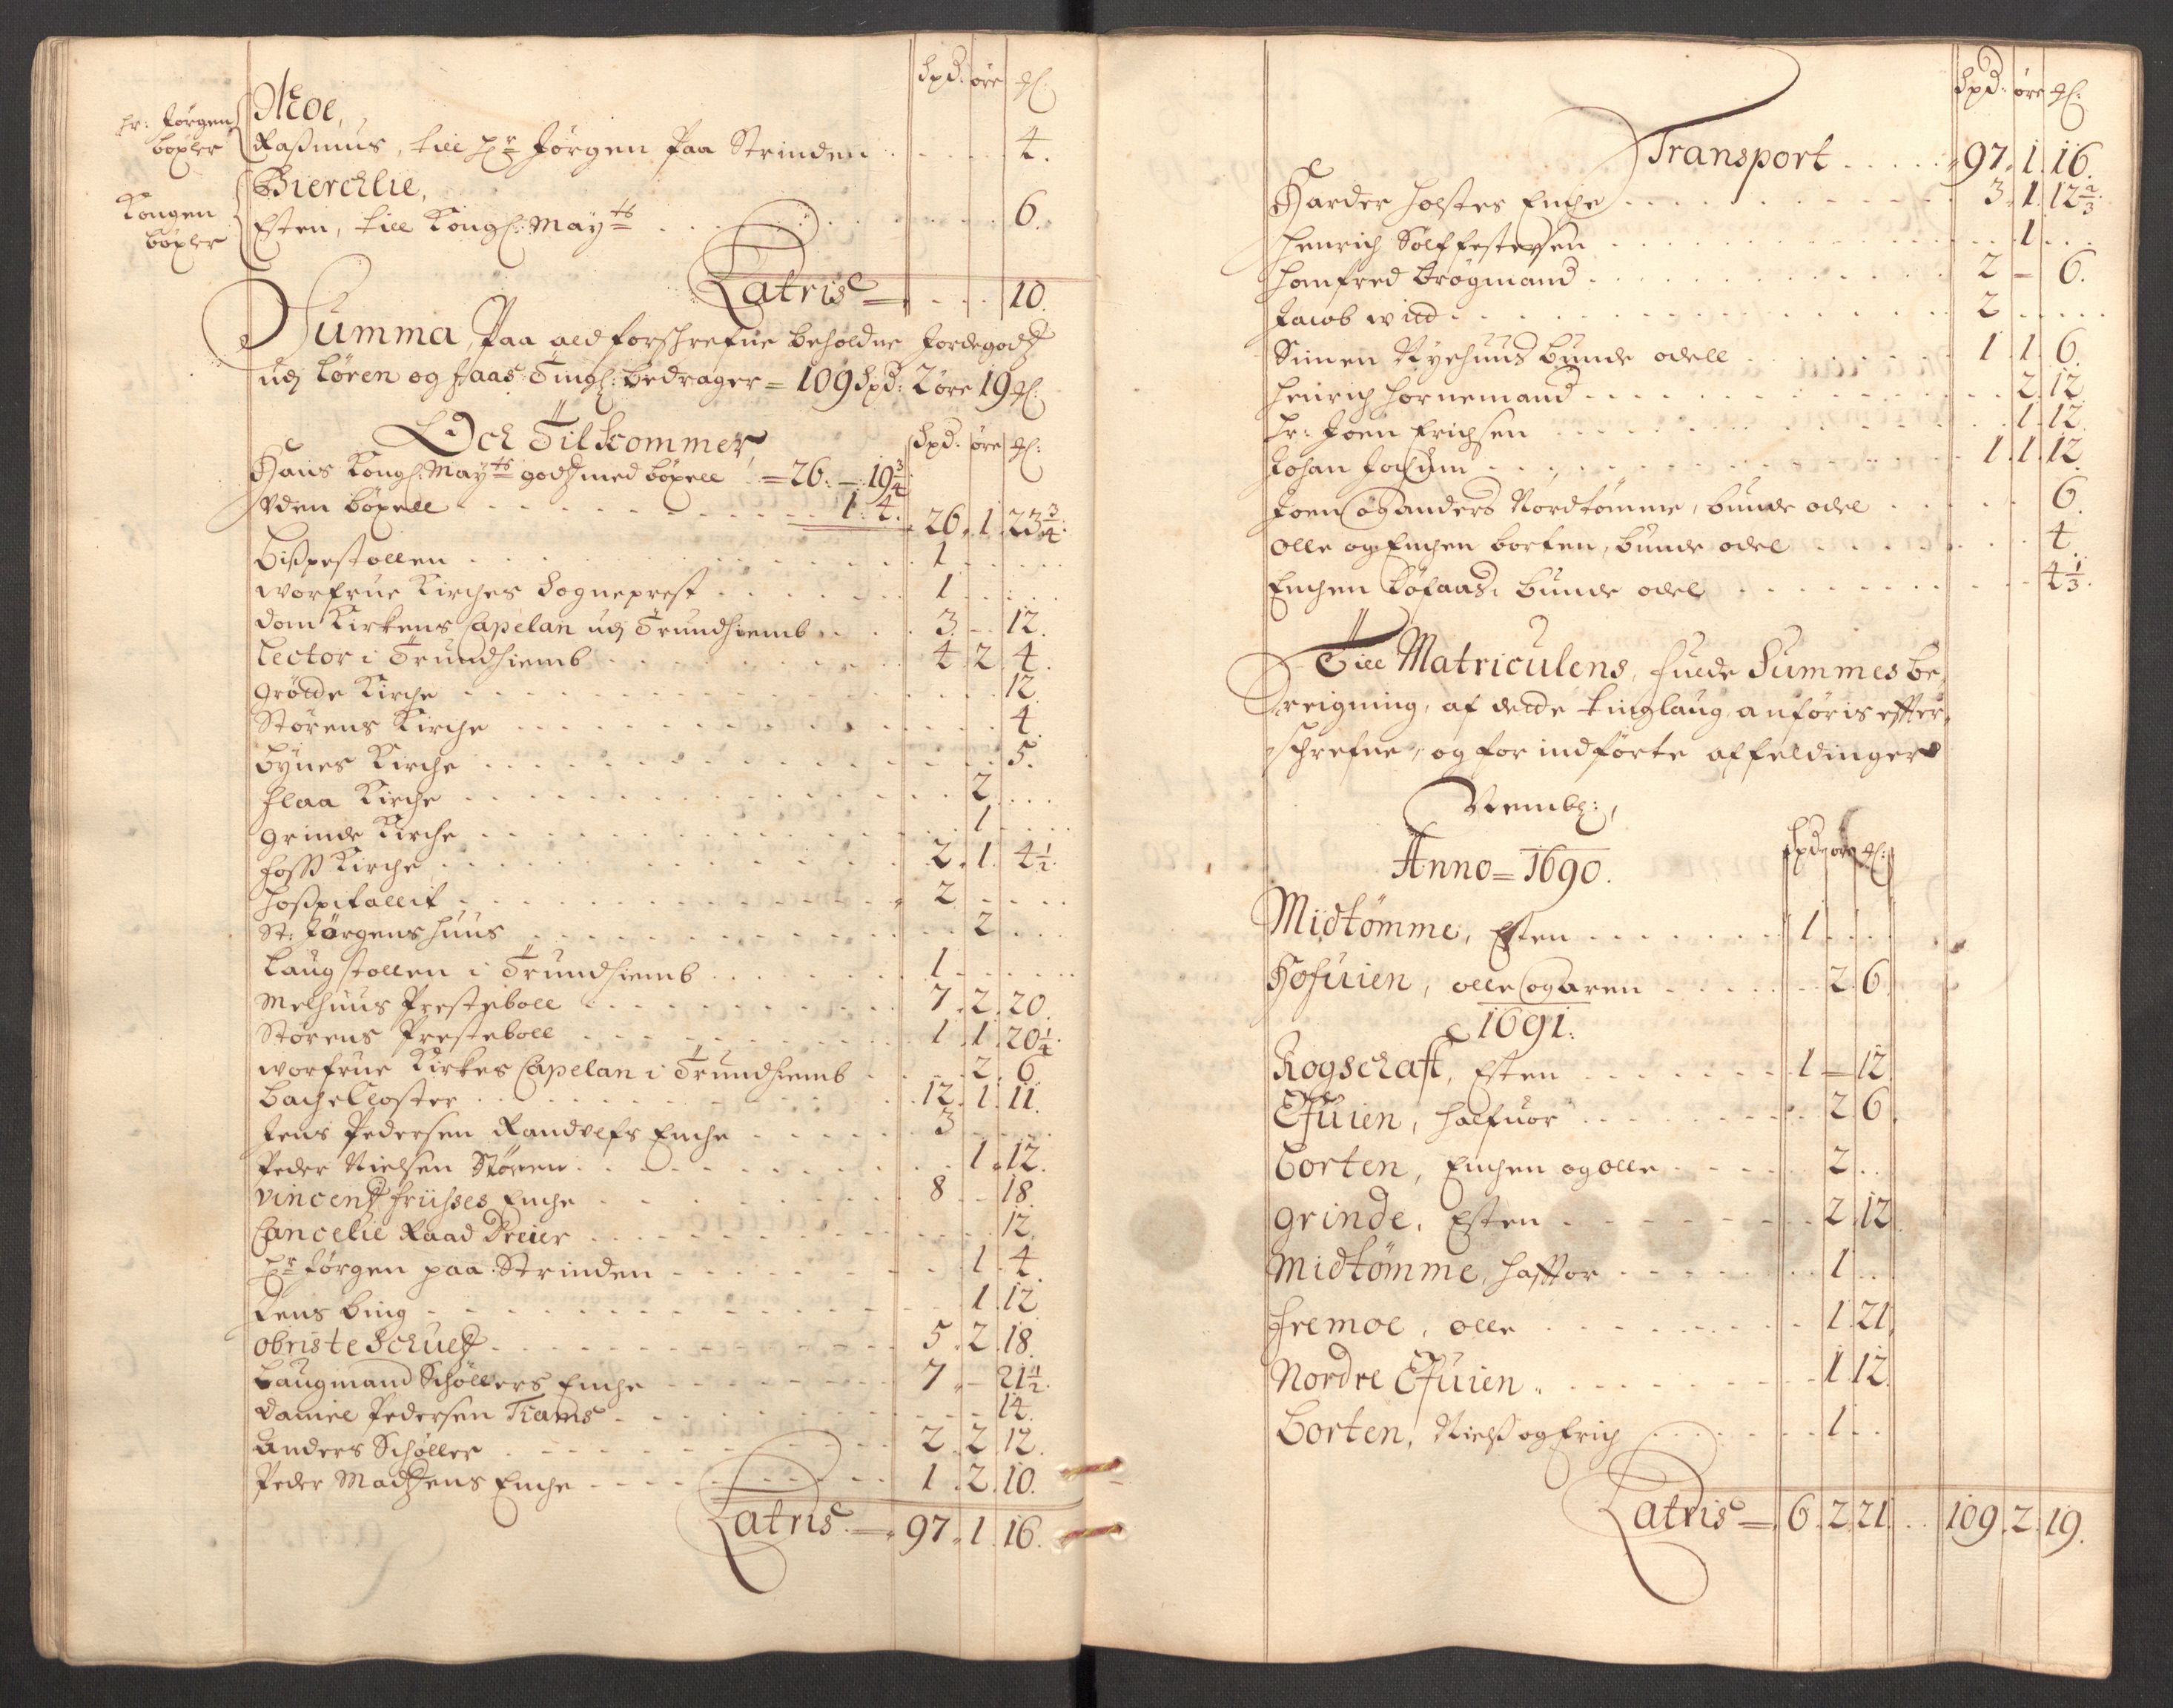 Spd: øre ₰:
Hr: Jørgen bøxler
Moe,
Rasmus, till Hr Jørgen paa Strinden . . . . 4.
Kongen bøxler
Bierchlie,
Esten, till Kongl: Mayts . . . . 6.
Latris = . . . 10.
Summa, Paa all forschrefne beholdne Jordegodtz
udj Støren og Haas Tingl: bedrager = 109 Spd: 2 øre 19 ₰:
Och Tilkommer,
Spd: øre ₰:
Hans Kongl: Mayts godtz med bøxell = 26. – 19 3/4
Uden bøxell . . . 1. 4. 26. 1. 23 3/4.
Bispestollen . . . 1 . .
Worfrue Kirches Sogneprest . . . 1 . .
Dom Kirkens Capelan udj Trundhiemb . . 3. – 12.
Lector i Trundhiemb . . . 4. 2. 4.
Grøtde Kirche . . . 12.
Størens Kirche . . . 4.
Bynes Kirche . . . 5.
Flaa Kirche . . . 2. . .
Grinde Kirche . . . 1. . .
Foss Kirche . . . 2. 1. 4 1/2.
Hospitallit . . . 2 . .
St: Jørgens huus . . . 2 . .
Laugstollen i Trundhiemb . . . 1 . .
Melhuus Presteboll . . . 7. 2. 20.
Størens Presteboll . . . 1. 1. 20 1/4.
Worfrue Kirkes Capelan i Trundhiemb . . . 2. 6
Bache Closter . . . 12. 1. 11.
Jens Pedersen Randulfs Enche . . . 3 . .
Peder Nielsen Støren . . . 1. 12.
Vincentz Friises Enche . . . 8 – 18.
Cancelie Raad Dreier . . . 12.
Hr Jørgen paa Strinden . . . 1. 4.
Jens Bing . . . 1. 12
Obriste Schultz . . . 5. 2. 18.
Laugmand Schøllers Enche . . . 7. – 21 1/2.
Daniel Pedersen Tiams . . . 14.
Anders Schøller . . . 2. 2. 12.
Peder Madtzens Enche . . . 1. 2. 10.
Latris = 97. 1. 16.
Spd: øre ₰:
Transport . . . 97. 1. 16.
Harder Holstes Enche . . . 3. 1. 12 2/3.
Henrich Sølffestersen . . . 1 . .
Homfred Brøgmand . . . 2 – 6.
Jacob Witd . . . 2 . .
Simen Nyehuus bunde odell . . . 1. 1. 6.
Henrich Hornemand . . . 2. 12.
Hr: Joen Erichsen . . . 1. 12.
Johan Jochum . . . 1. 1. 12.
Joen og Anders Nordtømme, bunde odel . . . 6.
Olle og Enchen Borten, bunde odel . . . 4.
Enchen Løfaas, bunde odel . . . 4 1/3.
Till Matriculens, fulde Summes be,
reigning, af dette tinglaug, anføris effter,
schrefne, og for indførte affeldinger
Nembl:,
Spd: øre ₰:
Anno = 1690.
Midtømme, Esten . . . 1 . .
Hofuien, olle og Aren . . . 2. 6
1691:
Rogschaft, Esten . . . 1 – 12
Efuien, Halfuor . . . 2. 6.
Borten, Enchen og olle . . . 2 . .
Grinde, Esten . . . 2. 12.
Midtømme, Hafftor . . . 1 . .
Fremoe, olle . . . 1. 21.
Nordre Efuien . . . 1. 12.
Borten, Niels og Erich . . . 1 . .
Latris = 6. 2. 21. . . 109. 2. 19.